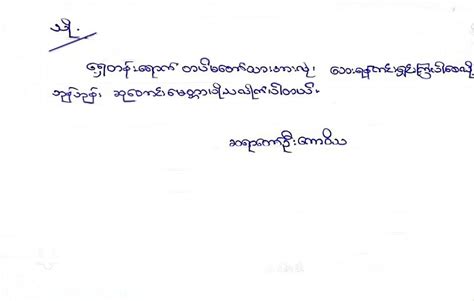 သို့.
ရှေ့တန်းရောက် တပ်မတော်သားအားလုံး ဘေးရန်ကင်းရှင်းကြပါစေလို့
ဘုန်းဘုန်း ဆုတောင်းမေတ္တာပို့သလိုက်ပါတယ်။
ဆရာတော်ဦးကောဝိဒ